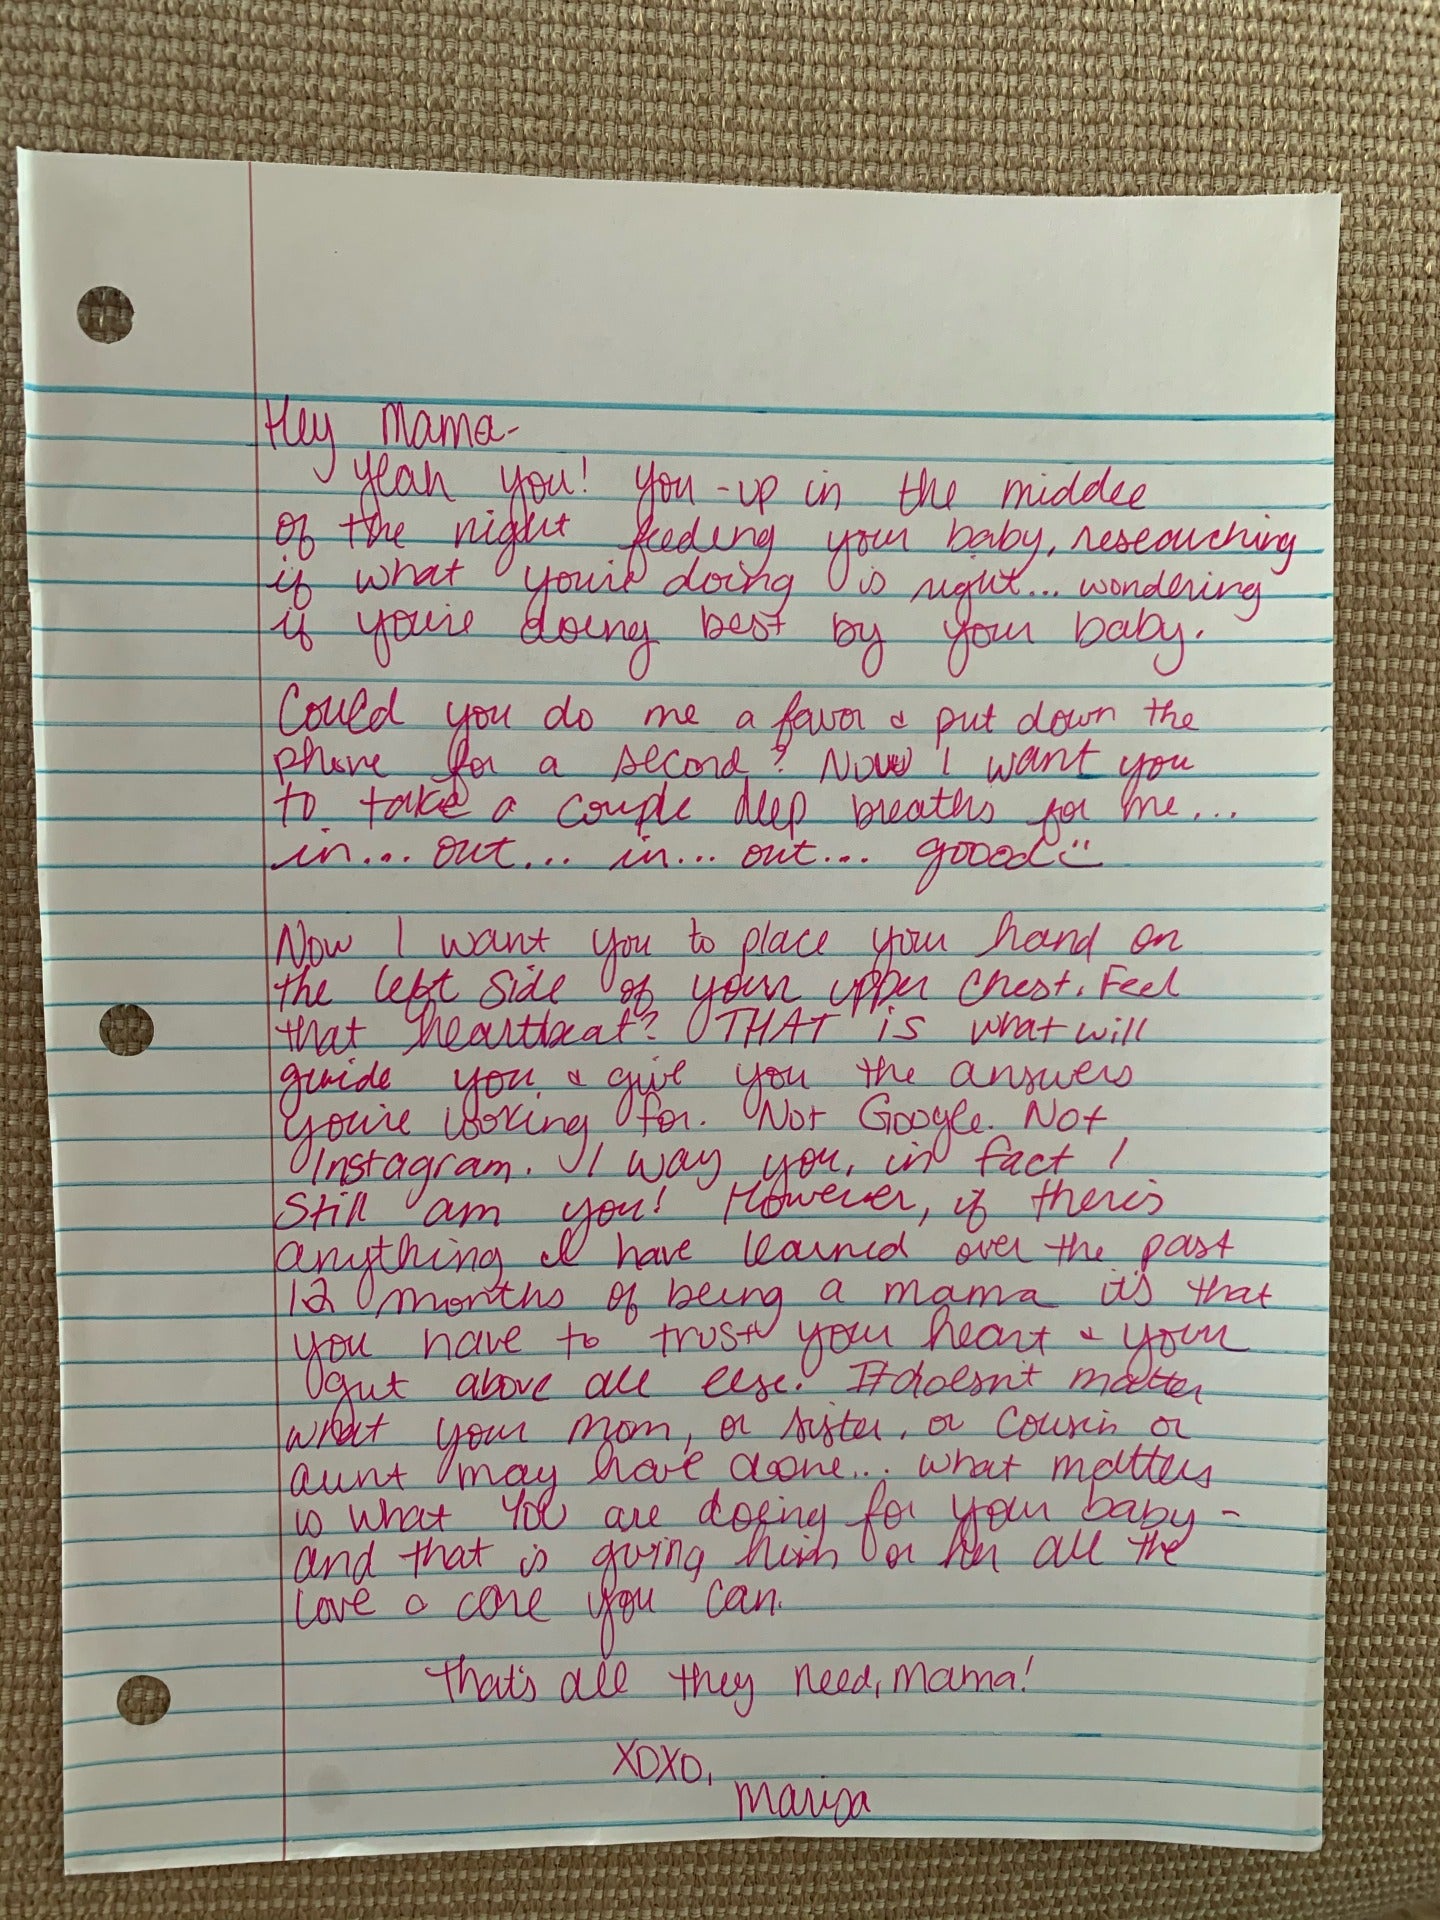 Hey Mama-
Yeah you! You - up in the middle
of the night feeding your baby, researching
if what you're doing is right... wondering
if you're doing best by your baby.
Could you do me a favor & put down the
phone for a second? Now I want you
to take a couple deep breaths for me...
in... out... in... out... goood :)
Now I want you to place your hand on
the left side of your upper chest. Feel
that heartbeat? THAT is what will
guide you & give you the answers
you're looking for. Not Google. Not
Instagram. I was you, in fact I
still am you! However, if there's
anything I have learned over the past
12 months of being a mama it's that
you have to trust your heart & your
gut above all else. It doesn't matter
what your mom, or sister, or cousin or
aunt may have done... what matters
is what YOU are doing for your baby -
and that is giving him or her all the
love & care you can.
That's all they need, Mama!
XOXO,
Marisa